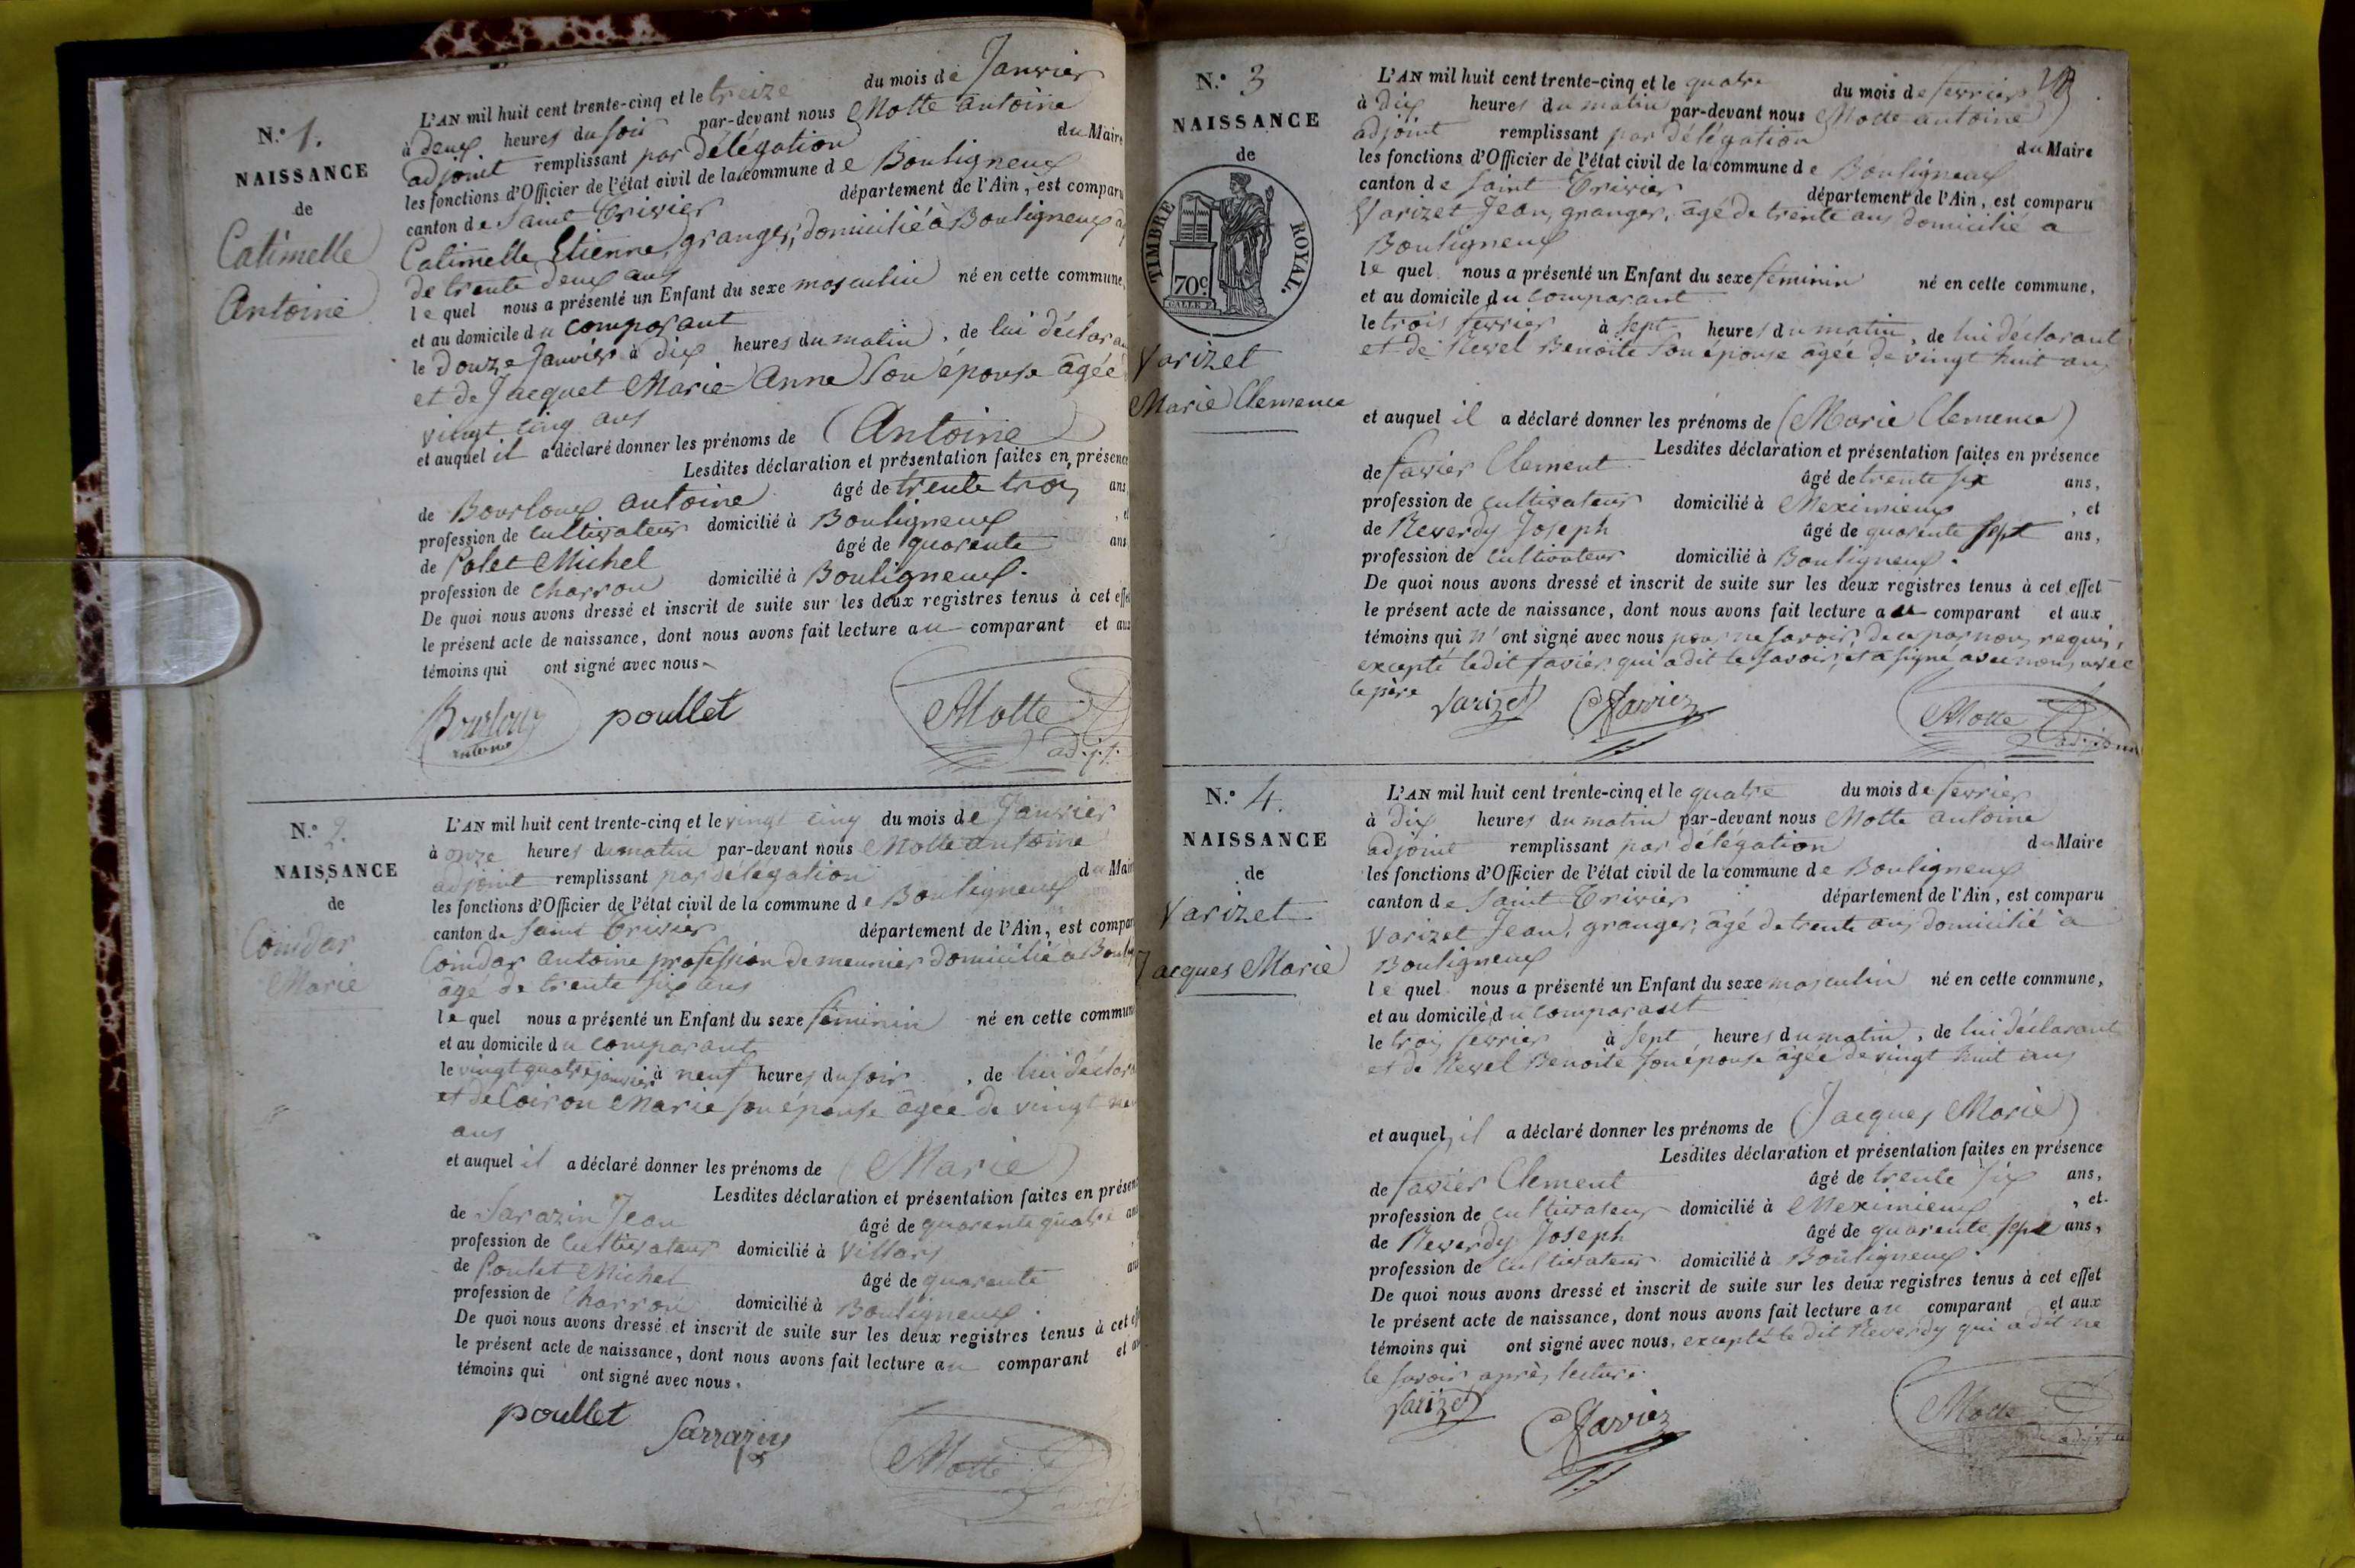 N.º 1.
NAISSANCE
de
Catimelle
Antoine
L'AN mil huit cent trente-cinq et le treize du mois de Janvier
à deux heures du soir par-devant nous Motte antoine
adjoint remplissant par délégation du Maire
les fonctions d'Officier de l'état civil de la commune de Bouligneux
canton de Saint Trivier département de l'Ain, est comparu
Catimelle Etienne, granger, domicilié à Bouligneux
de trente deux ans
lequel nous a présenté un Enfant du sexe masculin né en cette commune,
et au domicile du comparant
le douze Janvier à dix heures du matin, de lui déclara
et de Jacquet Marie Anne son épouse âgée
vingt cinq ans
et auquel il a déclaré donner les prénoms de (Antoine)
Lesdites déclaration et présentation faites en présence
de Bourloux antoine âgé de trente trois ans,
profession de cultivateur domicilié à Bouligneux, et
de Polet Michel âgé de quarente ans
profession de charron domicilié à Bouligneux.
De quoi nous avons dressé et inscrit de suite sur les deux registres tenus à cet effet
le présent acte de naissance, dont nous avons fait lecture au comparant et aux
témoins qui ont signé avec nous
Bourloux poullet Motte
antoine adjt.
N.º 2.
NAISSANCE
de
Coindar
Marie
L'AN mil huit cent trente-cinq et le vingt cinq du mois de Janvier
à onze heures du matin par-devant nous Motte antoine
adjoint remplissant par délégation du Mair
les fonctions d'Officier de l'état civil de la commune de Bouligneux
canton de Saint Trivier département de l'Ain, est compar
Coindar antoine profession de meunier domicilié à Bouli
agé de trente six ans
lequel nous a présenté un Enfant du sexe féminin né en cette commun
et au domicile du comparant
le vingt quatre janvier à neuf heures du soir, de lui déclar
et de Coiron Marie son épouse âgée de vingt
ans
et auquel il a déclaré donner les prénoms de (Marie)
Lesdites déclaration et présentation faites en présen
de Sarazin Jean âgé de quarente quatre ans
profession de cultivateur domicilié à Villars
de Poulet Michel âgé de quarente ans
profession de charron domicilié à Bouligneux.
De quoi nous avons dressé et inscrit de suite sur les deux registres tenus à cet ef
le présent acte de naissance, dont nous avons fait lecture au comparant et a
témoins qui ont signé avec nous.
poullet Sarrazin Motte
N.º 3
NAISSANCE
de
TIMBRE ROYAL.
70c
Varizet
Marie Clemence
L'AN mil huit cent trente-cinq et le quatre du mois de fevrier
à dix heures du matin par-devant nous Motte antoine
adjoint remplissant par délégation du Maire
les fonctions d'Officier de l'état civil de la commune de Bouligneux
canton de Saint Trivier département de l'Ain, est comparu
Varizet Jean, granger, âgé de trente ans domicilié a
Bouligneux
lequel nous a présenté un Enfant du sexe féminin né en cette commune,
et au domicile du comparant
le trois fevrier à sept heures du matin, de lui déclarant
et de Revel Benoite son épouse âgée de vingt huit ans
et auquel il a déclaré donner les prénoms de (Marie Clemence)
Lesdites déclaration et présentation faites en présence
de favier Clement âgé de trente six ans,
profession de cultivateur domicilié à Meximieux, et
de Reverdy Joseph âgé de quarente sept ans,
profession de cultivateur domicilié à Bouligneux.
De quoi nous avons dressé et inscrit de suite sur les deux registres tenus à cet effet
le présent acte de naissance, dont nous avons fait lecture au comparant et aux
témoins qui n'ont signé avec nous pour ne savoir, de ce par nous requis,
excepté ledit favier qui a dit le savoir, et a signé avec nous avec
le père Varizet Cfavier Motte
adjoint
N.º 4.
NAISSANCE
de
Varizet
Jacques Marie
L'AN mil huit cent trente-cinq et le quatre du mois de fevrier
à dix heures du matin par-devant nous Motte antoine
adjoint remplissant par délégation du Maire
les fonctions d'Officier de l'état civil de la commune de Bouligneux
canton de Saint Trivier département de l'Ain, est comparu
Varizet Jean, granger, âgé de trente ans, domicilié à
Bouligneux
lequel nous a présenté un Enfant du sexe masculin né en cette commune,
et au domicile du comparant
le trois fevrier à sept heures du matin, de lui déclarant
et de Revel Benoite son épouse âgée de vingt huit ans
et auquel il a déclaré donner les prénoms de (Jacques Marie)
Lesdites déclaration et présentation faites en présence
de favier Clement âgé de trente six ans,
profession de cultivateur domicilié à Meximieux, et
de Reverdy Joseph âgé de quarente sept ans,
profession de cultivateur domicilié à Bouligneux.
De quoi nous avons dressé et inscrit de suite sur les deux registres tenus à cet effet
le présent acte de naissance, dont nous avons fait lecture au comparant et aux
témoins qui ont signé avec nous, excepté le dit Reverdy qui a dit ne
le savoir après lecture.
Varizet Cfavier Motte